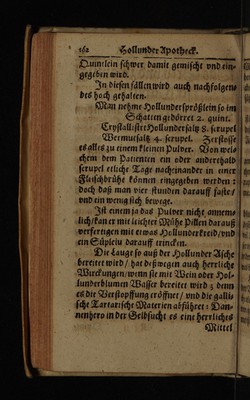 162 Hollunder Apotheck.
Quintlein schwer damit gemischt und ein-
gegeben wird.
In diesen fällen wird auch nachfolgen-
des hoch gehalten.
Man nehme Hollundersprößlein so im
Schatten gedörret 2. quint.
Crystallisirt Hollundersaltz 8. scrupel
Wermutsaltz 4. scrupel. Zerstosse
es alles zu einem kleinen Pulver. Von wel-
chem dem Patienten ein oder anderthalb
scrupel etliche Tage nacheinander in einer
Fleischbrühe können eingegeben werden:
doch daß man vier stunden darauff faste/
und ein wenig sich bewege.
Ist einem ja das Pulver nicht annem-
lich/kan er mit leichter Mühe Pillen darauß
verfertigen mit etwas Hollunderkreid/und
ein Süplein darauff trincken.
Die Lauge so auß der Hollunder Asche
bereitet wird/ hat deßwegen auch herrliche
Wirckungen/wenn sie mit Wein oder Hol-
lunderblumen Wasser bereitet wird; denn
es die Verstopffung eröffnet/ und die galli-
sche Tartarische Materien abführet: Dan-
nenhero in der Gelbsucht es ein herrliches
Mittel